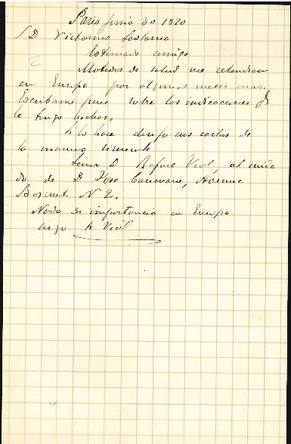 Paris Junio 30 1880
S D. Victorino Lastarria
Estimado amigo
Motivos de salud me retendran
en Europa por algunos meses mas.
Escribame pues sobre las indicaciones qe
le tengo hechas.
Si lo hace dirija sus cartas de
la manera siguiente
Señor D. Rafael Vial al cuida
do de D. Canevaro, Avenue
Bosquet N 2.
Nada de importancia en Europa
R Vial